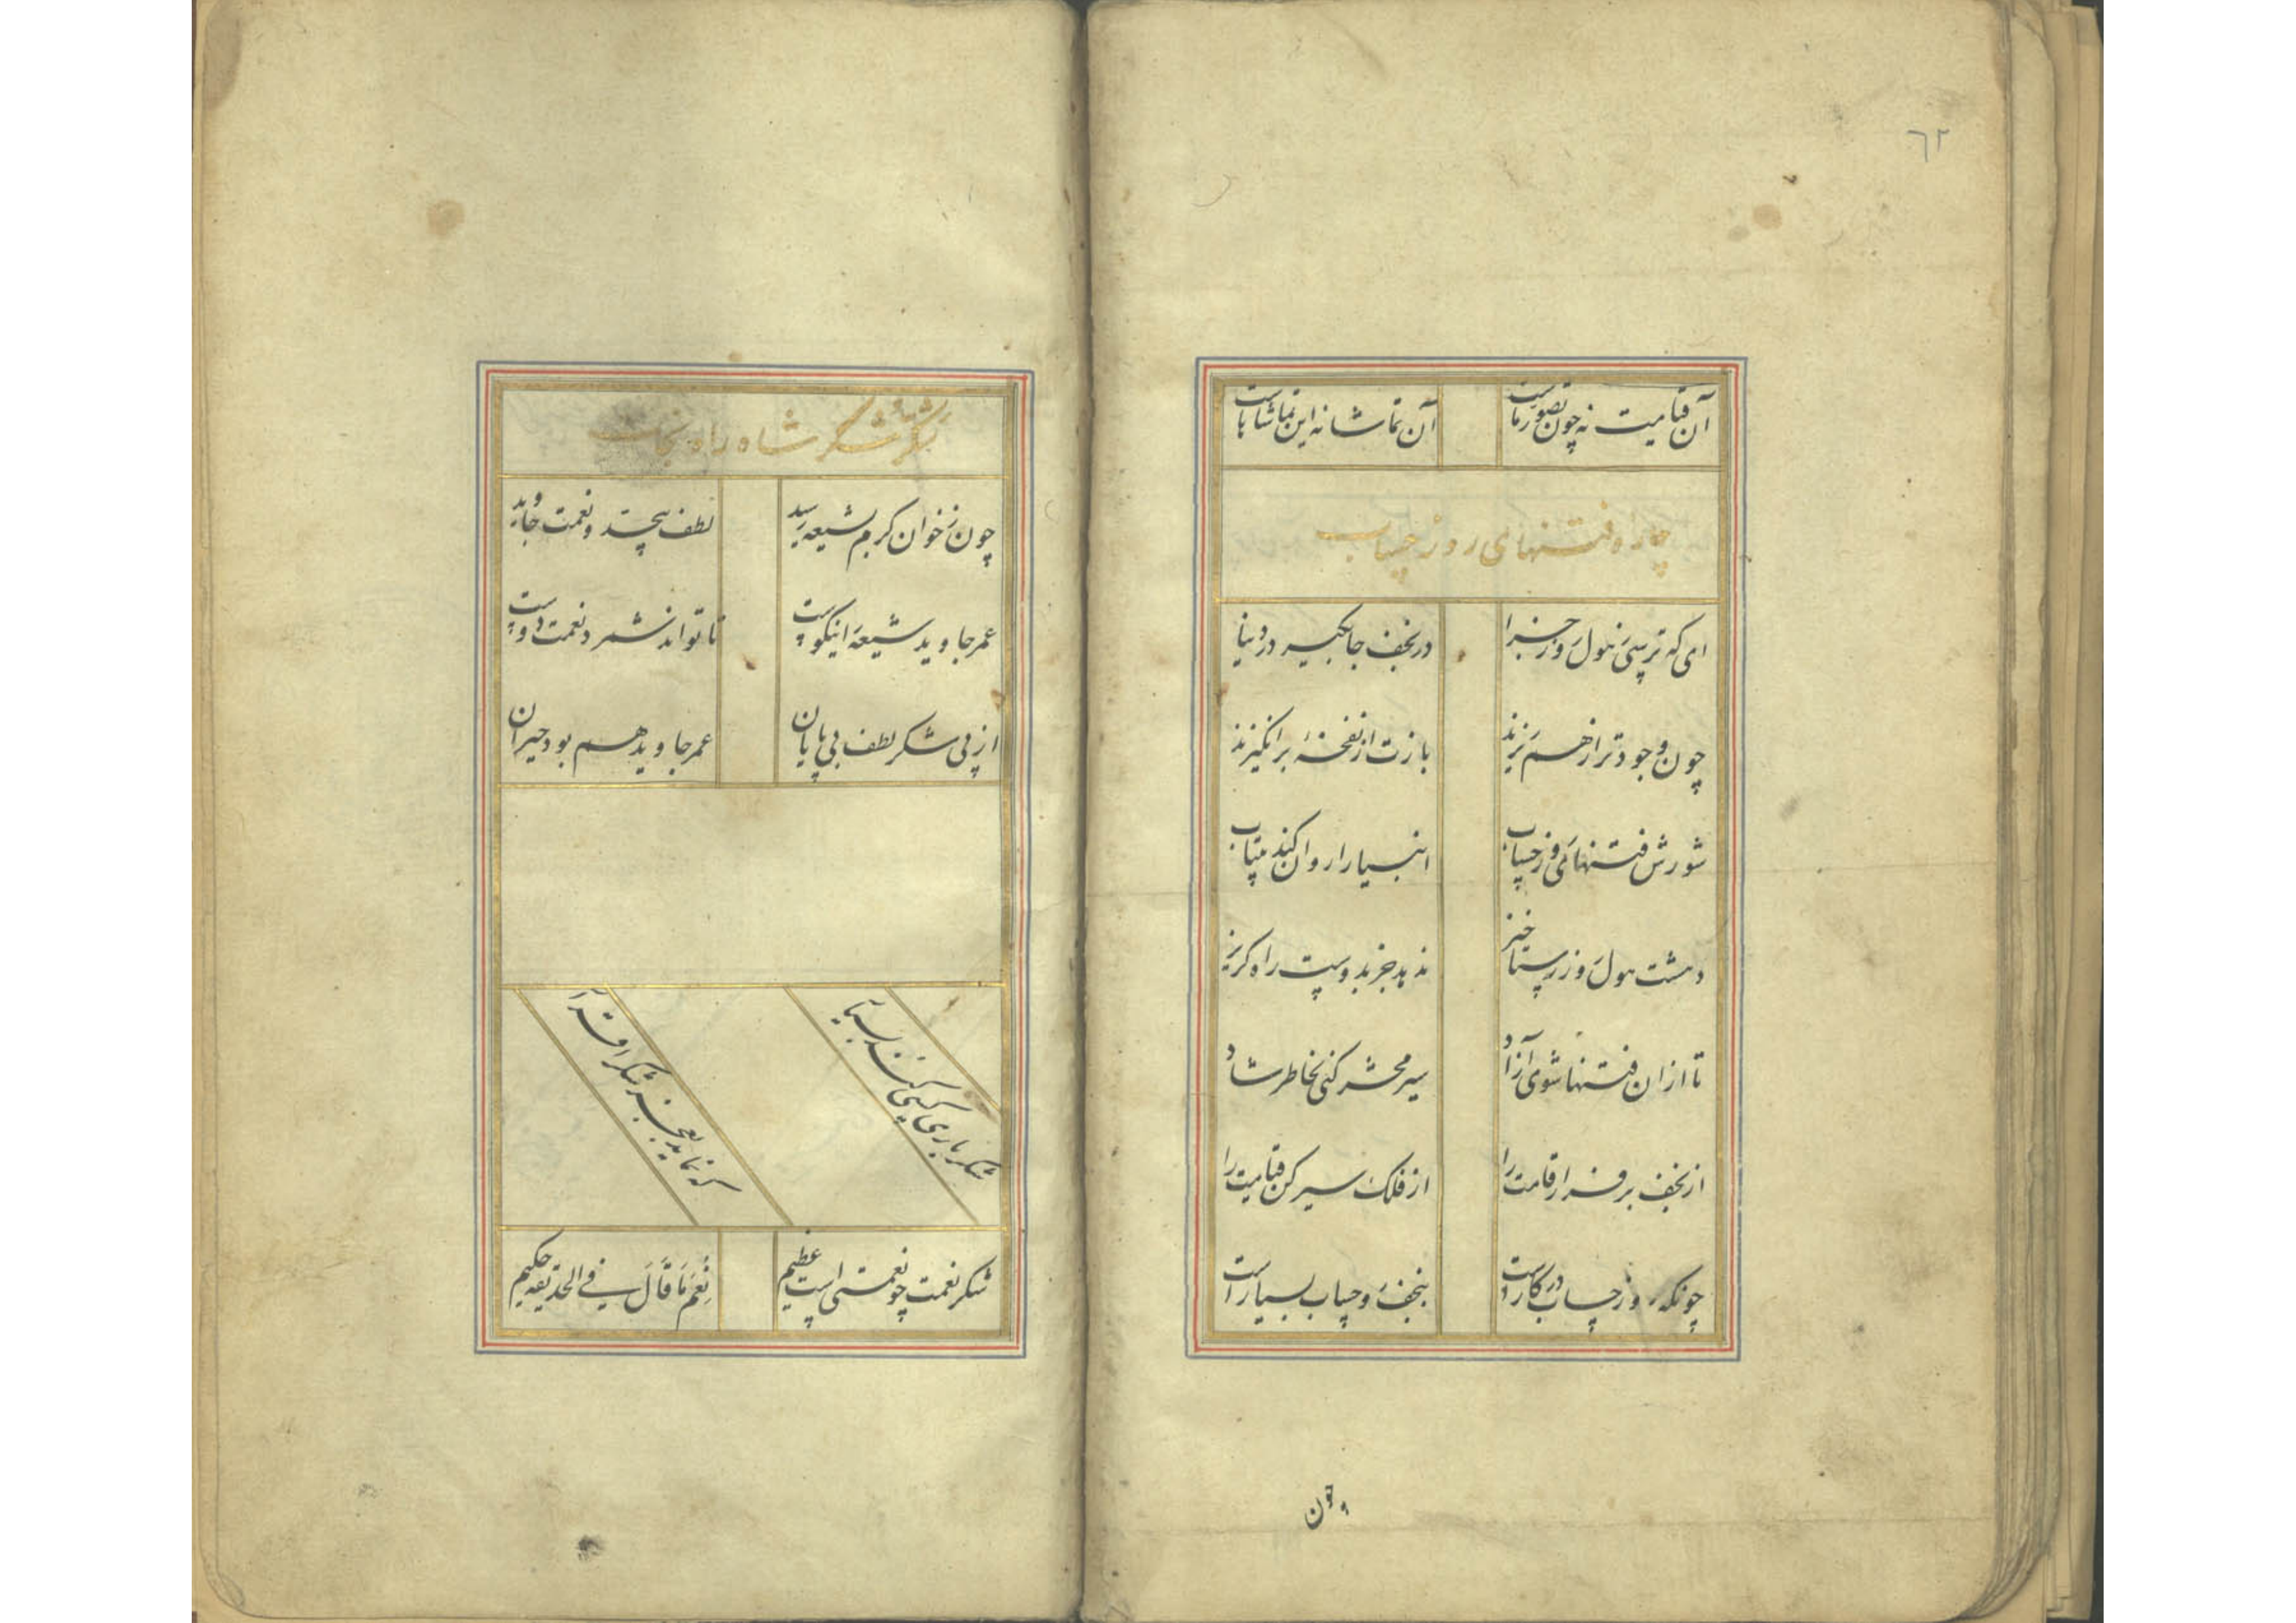 ٦٢
آن قیامت نه چون تصور ماست
آن تماشا نه این تماشاهاست
چاره فتنهای روز حساب
ای که ترسی ز هول روز جزا
در نجف جا بگیر در دنیا
چون وجود ترا ز هم ریزند
بازت از نفخهٔ برانگیزند
شورش فتنهای روز حساب
انبیا را روان کند بیتاب
دهشت هول روز رستاخیز
ندهد جز بدوست راه گریز
تا از ان فتنها شوی آزاد
سیر محشر کنی بخاطر شاد
از نجف برفراز قامت را
از فلک سیر کن قیامت را
چونکه روز حساب در کار است
نجف و حساب بسیار است
چون
شکر شاه راه نجات
چون ز خوان کرم بشیعه رسید
لطف بیحد و نعمت جاوید
عمر جاوید شیعه را نیکوست
تا تواند شمرد نعمت دوست
از پی شکر لطف بی پایان
عمر جاوید هم بود حیران
شکر باری کسی کند بسیار
که نماید بعجز شکر اقرار
شکر نعمت چو نعمتی است عظیم
نعم ما قال فی الحدیقه حکیم